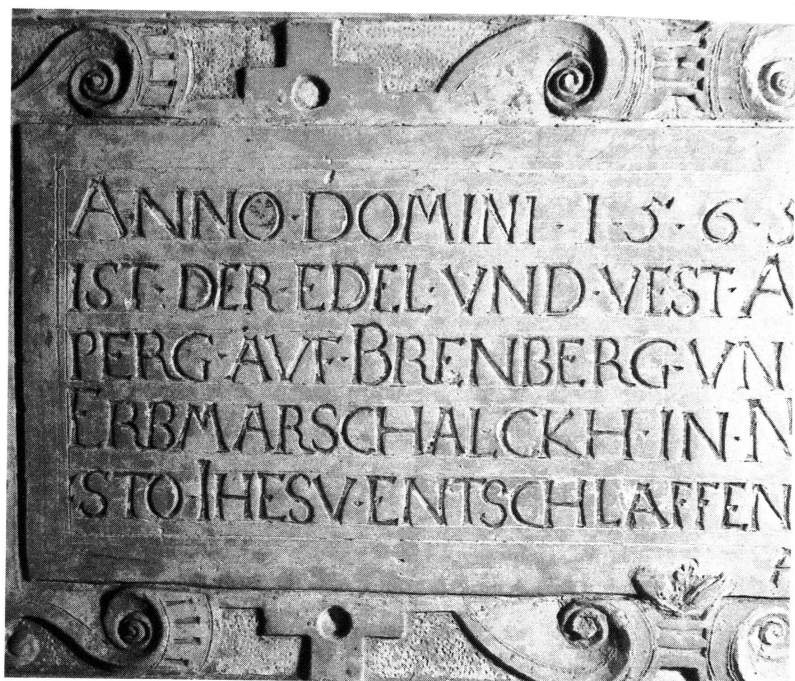 ANNO · DOMINI · 1 · 5 · 6 · 
IST · DER · EDEL · VND · VEST · A
PERG · AVF · BRENBERG · VN
ERBMARSCHALCKH · IN · N
STO · IHESV · ENTSCHLAFFEN